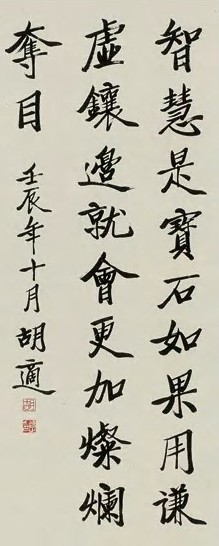 智慧是寶石如果用謙
虛鑲邊就會更加燦爛
奪目
壬辰年十月胡適